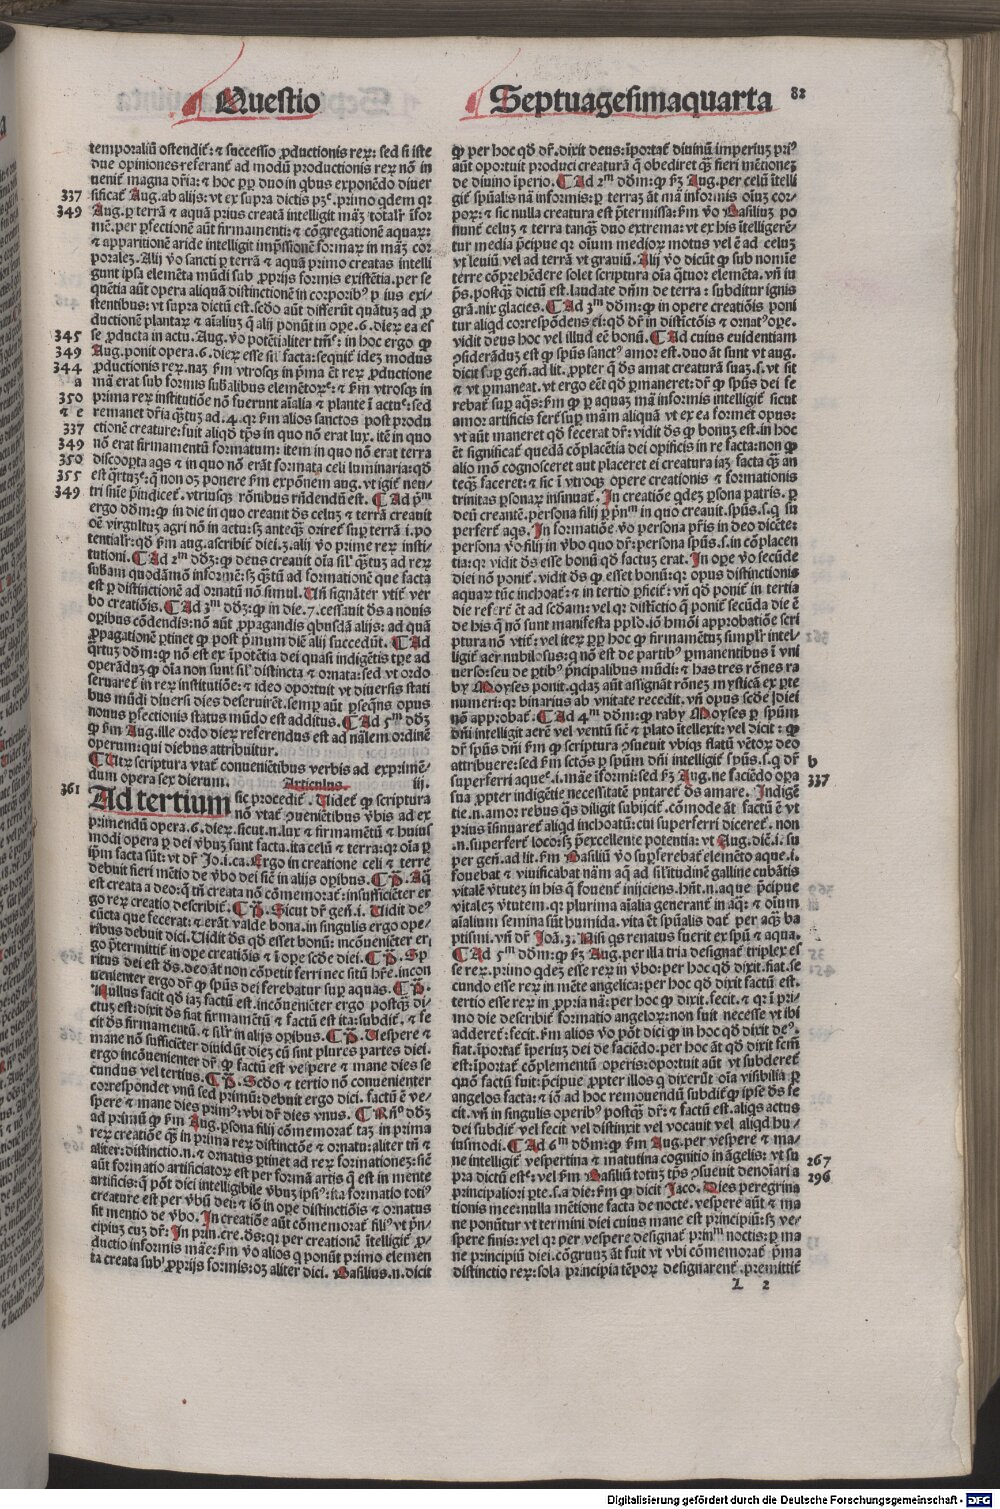 Questio
Septuagesimaquarta
82
temporaliū ostendit᷑: ⁊ successio ꝓductionis reꝝ: sed si iste
due opiniones referant᷑ ad modū productionis reꝝ nō in
uenit᷑ magna dr̄ia: ⁊ hoc ꝓp duo in qbus exponēdo diuer
337 sificat᷑ Aug. ab alijs: vt ex supra dictis pꝫ. primo qdem qꝛ
349 Aug. ꝑ terrā ⁊ aquā prius creatā intelligit māꝫ totalr̄ īfor
mē. per ꝑfectionē aūt firmamenti: ⁊ cōgregationē aquaꝝ:
⁊ apparitionē aride intelligit imp̄ssionē formaꝝ in māꝫ cor
poralē. Alij ꝟo sancti ꝑ terrā ⁊ aquā primo creatas intelli
gunt ipsa elemēta mūdi sub ꝓprijs formis existētia. per se
quētia aūt opera aliquā distinctionē in corporibꝰ p ius exi/
stentibus: vt supra dictū est. scd̄o aūt differūt quātuꝫ ad ꝓ
ductionē plantaꝝ ⁊ aīaliuꝫ q̄ alij ponūt in oꝑe. 6. dieꝝ ea es
345 se ꝓducta in actu. Aug. ꝟo potētialiter tm̄: in hoc ergo ꝙ
349 Aug. ponit opera. 6. dieꝝ esse sil̄ facta: sequit᷑ ideꝫ modus
344 ꝓductionis reꝝ. naꝫ fm̄ vtrosqꝫ in p̄ma ēt reꝝ ꝓductione
a mā erat sub formis sub̄alibus elemētoꝝ: ⁊ fm̄ vtrosqꝫ in
350 prima reꝝ institutiōe nō fuerunt aīalia ⁊ plante ī actu: sed
⁊ e remanet dr̄ia q̄tuꝫ ad. 4. qꝛ fm̄ alios sanctos post produ
337 ctionē creature: fuit aliqd̄ tp̄s in quo nō erat lux. itē in quo
349 nō erat firmamentū formatum: item in quo nō erat terra
350 discooꝑta aqs ⁊ in quo nō erāt formata celi luminaria: qd̄
355 est q̄rtuꝫ: q̄ non oꝫ ponere fm̄ expōnem aug. vt igit᷑ neu/
349 tri sn̄ie p̄iudicet᷑. vtriusqꝫ rōnibus rn̄dendū est. ¶ Ad pᵐ
ergo dōm: ꝙ in die in quo creauit dꝰs celuꝫ ⁊ terrā creauit
oē virgultuꝫ agri nō in actu: sꝫ anteqꝫ oriret᷑ suꝑ terrā .i. po
tentialr̄: qd̄ fm̄ aug. ascribit᷑ diei. 3. alij ꝟo prime reꝝ insti/
tutioni. ¶ Ad 2ᵐ dōꝫ: ꝙ deus creauit oīa sil̄ q̄tuꝫ ad reꝝ
sub̄am quodāmō informē: sꝫ q̄tū ad formationē que facta
est ꝑ distinctionē ad ornatū nō simul. Un̄ signāter vtit᷑ ver
bo creatiōis. ¶ Ad 3ᵐ dōꝫ: ꝙ in die. 7. cessauit dꝰs a nouis
oꝑibus cōdendis: nō aūt ꝓpagandis qbusdā alijs: ad quā
ꝓpagationē ꝑtinet ꝙ post p̄mum diē alij succedūt. ¶ Ad
q̄rtuꝫ dōm: ꝙ nō est ex īpotētia dei quasi indigētis tꝑe ad
operāduꝫ ꝙ oīa non sunt sil̄ distincta ⁊ ornata: sed vt ordo
seruaret᷑ in reꝝ institutiōe: ⁊ ideo oportuit vt diuersis stati
bus mūdi diuersi dies deseruirēt. semꝑ aūt ꝑ seqn̄s opus
nouus ꝑfectionis status mūdo est additus. ¶ Ad 5ᵐ dōꝫ
ꝙ fm̄ Aug. ille ordo dieꝝ referendus est ad nālem ordinē
operum: qui diebus attribuitur.
¶ Utꝝ scriptura vtat᷑ conueniētibus verbis ad exprimē/
dum opera sex dierum. Articulus .iij.
361 Ad tertium sic procedit᷑. Uidet᷑ ꝙ scriptura
nō vtat᷑ ↄueniētibus ꝟbis ad ex
primendū opera. 6. dieꝝ. sicut. n. lux ⁊ firmamētū ⁊ huius
modi opera ꝑ dei ꝟbuꝫ sunt facta. ita celū ⁊ terra: qꝛ oīa ꝑ
ip̄m facta sūt: vt dr̄ Jo. i. ca. Ergo in creatione celi ⁊ terre
debuit fieri mētio de ꝟbo dei sic̄ in alijs oꝑibus. ¶ P̄. Aq̄
est creata a deo: q̄ tn̄ creata nō cōmemorat᷑: insufficiēter er
go reꝝ creatio describit᷑. ¶ P̄. Sicut dr̄ gen̄. i. Uidit deꝰ
cūcta que fecerat: ⁊ erāt valde bona. in singulis ergo ope/
ribus debuit dici. Uidit dꝰs qd̄ esset bonū: incōueniēter er
go p̄termittit᷑ in oꝑe creatiōis ⁊ ī oꝑe scd̄e diei. ¶ P̄. Sp̄
ritus dei est dꝰs. deo āt non cōpetit ferri nec sitū hr̄e. incon
uenienter ergo dr̄ ꝙ spūs dei ferebatur suꝑ aquas. ¶ P̄.
Nullus facit qd̄ iaꝫ factū est. incōueniēter ergo postqꝫ di/
ctuꝫ est: dixit dꝰs fiat firmamētū ⁊ factū est ita: subdit᷑. ⁊ fe
cit dꝰs firmamentū. ⁊ silr̄ in alijs oꝑibus. ¶ P̄. Uespere ⁊
mane nō sufficiēter diuidūt dieꝫ cū sint plures partes diei.
ergo incōuenienter dr̄ ꝙ factū est vespere ⁊ mane dies se
cundus vel tertius. ¶ P̄. Scd̄o ⁊ tertio nō conuenienter
correspondet vnū sed primū: debuit ergo dici. factū ē ve/
spere ⁊ mane dies primꝰ: vbi dr̄ dies vnus. ¶ Rn̄o dōꝫ
ad primū ꝙ fm̄ Aug. ꝑsona filij cōmemorat᷑ taꝫ in prima
reꝝ creatiōe q̄ꝫ in prima reꝝ distinctōe ⁊ ornatu: aliter tn̄ ⁊
aliter: distinctio. n. ⁊ ornatus ꝑtinet ad reꝝ formationeꝫ: sic̄
aūt formatio artificiatoꝝ est per formā artis q̄ est in mente
artificis: q̄ pōt dici intelligibile ꝟbuꝫ ipsiꝰ: ita formatio totiꝰ
creature est per ꝟbū dei: ⁊ iō in oꝑe distinctiōis ⁊ ornatus
fit mentio de ꝟbo. In creatiōe aūt cōmemorat᷑ filiꝰ vt p̄n/
cipiuꝫ cuꝫ dr̄: In prin. cre. dꝰs: qꝛ per creationē ītelligit᷑ ꝓ/
ductio informis māe: fm̄ ꝟo alios q̄ ponūt primo elemen
ta creata subꝰ ꝓprijs formis: oꝫ aliter dici. Basilius. n. dicit
ꝙ per hoc qd̄ dr̄. dixit deus: īportat᷑ diuinū imperiuꝫ priꝰ
aūt oportuit produci creaturā q̄ obediret q̄ꝫ fieri mētioneꝫ
de diuino īperio. ¶ Ad 2ᵐ dōm: ꝙ fꝫ Aug. per celū ītelli
git᷑ spūalis nā informis: ꝑ terraꝫ āt mā informis oīuꝫ cor/
poꝝ: ⁊ sic nulla creatura est p̄termissa: fm̄ ꝟo Basiliuꝫ po
nunt᷑ celuꝫ ⁊ terra tanqꝫ duo extrema: vt ex his ītelligerē/
tur media p̄cipue qꝛ oīum medioꝝ motus vel ē ad celuꝫ
vt leuiū vel ad terrā vt grauiū. Alij ꝟo dicūt ꝙ sub nomīe
terre cōprehēdere solet scriptura oīa q̄tuor elemēta. vn̄ iu
p̄s. postqꝫ dictū est. laudate dn̄m de terra: subditur ignis
grā. nix glacies. ¶ Ad 3ᵐ dōm: ꝙ in opere creatiōis poni
tur aliqd correspōdens ei: qd̄ dr̄ in distīctōis ⁊ ornatꝰ oꝑe.
vidit deus hoc vel illud eē bonū. ¶ Ad cuius euidentiam
ↄsiderāduꝫ est ꝙ spūs sanctꝰ amor est. duo āt sunt vt aug.
dicit suꝑ gen̄. ad lit. ꝓpter q̄ dꝰs amat creaturā suaꝫ. s. vt sit
⁊ vt ꝑmaneat. vt ergo eēt qd̄ ꝑmaneret: dr̄ ꝙ spūs dei fe
rebat᷑ suꝑ aqs: fm̄ ꝙ ꝑ aquaꝫ mā informis intelligit᷑ sicut
amor artificis fert᷑ suꝑ mām aliquā vt ex ea formet opus:
vt aūt maneret qd̄ fecerat dr̄: vidit dꝰs ꝙ bonuꝫ est. in hoc
ēt significat᷑ quedā cōplacētia dei opificis in re facta: non ꝙ
alio mō cognosceret aut placeret ei creatura iaꝫ facta q̄ꝫ an
teqꝫ faceret: ⁊ sic ī vtroqꝫ opere creationis ⁊ formationis
trinitas ꝑsonaꝝ insinuat᷑. In creatiōe qdeꝫ ꝑsona patris. ꝑ
deū creantē. persona filij ꝑ pⁿᵐ in quo creauit. spūs. s. q̄ su
perfert᷑ aqs. In formatiōe ꝟo persona pr̄is in deo dicēte:
persona ꝟo filij in ꝟbo quo dr̄: persona spūs. s. in cōplacen
tia: qꝛ vidit dꝰs esse bonū qd̄ factuꝫ erat. In oꝑe ꝟo secūde
diei nō ponit᷑. vidit dꝰs ꝙ esset bonū: qꝛ opus distinctionis
aquaꝝ tūc inchoat᷑: ⁊ in tertio ꝑficit᷑: vn̄ qd̄ ponit᷑ in tertia
die refert᷑ ēt ad scd̄am: vel qꝛ distīctio q̄ ponit᷑ secūda die ē
de his q̄ nō sunt manifesta ppl̄o. iō hm̄oi approbatiōe scri
ptura nō vtit᷑: vel iteꝝ ꝓp hoc ꝙ firmamētuꝫ simplr̄ intel/
ligit᷑ aer nubilosus: q̄ nō est de partibꝰ ꝑmanentibus ī vni
uerso: seu de ꝑtibꝰ p̄ncipalibus mūdi: ⁊ has tres rōnes ra
by Moyses ponit. qdaꝫ aūt assignāt rōneꝫ mysticā ex ꝑte
numeri: qꝛ binarius ab vnitate recedit. vn̄ opus scd̄e diei
nō approbat᷑. ¶ Ad 4ᵐ dōm: ꝙ raby Moyses ꝑ spūm
dn̄i intelligit aerē vel ventū sic̄ ⁊ plato ītellexit: vel dicit: ꝙ
dr̄ spūs dn̄i fm̄ ꝙ scriptura ↄsueuit vbiqꝫ flatū vētoꝝ deo
attribuere: sed fm̄ sctōs ꝑ spūm dn̄i intelligit᷑ spūs. s. q̄ dr̄ b
superferri aque. i. māe īformi: sed fꝫ Aug. ne faciēdo oꝑa 337
sua ꝓpter indigētie necessitatē putaret᷑ dꝰs amare. Indigē
tie. n. amor rebus q̄s diligit subijcit᷑. cōmode āt factū ē vt
prius īsinuaret᷑ aliqd inchoatū: cui superferri diceret᷑. non
. n. superfert᷑ loco: sꝫ p̄excellente potentia: vt Aug. dic̄. i. su
per gen̄. ad lit. fm̄ Basiliū ꝟo suꝑferebat᷑ elemēto aque. i.
fouebat ⁊ viuificabat nām aq̄ ad sil̄itudinē galline cubātis
vitalē ꝟtuteꝫ in his q̄ fouent᷑ inijciens. hn̄t. n. aque p̄cipue
vitaleꝫ ꝟtutem. qꝛ plurima aīalia generant᷑ in aq̄: ⁊ oīum
aīalium semina sūt humida. vita ēt spūalis dat᷑ per aq̄ꝫ ba
ptismi. vn̄ dr̄ Joā. 3. Nisi q̄s renatus fuerit ex spū ⁊ aqua.
¶ Ad 5ᵐ dōm: ꝙ fꝫ Aug. per illa tria designat᷑ triplex es
se reꝝ. primo qdeꝫ esse reꝝ in ꝟbo: per hoc qd̄ dixit. fiat. se
cundo esse reꝝ in mēte angelica: per hoc qd̄ dixit factū est.
tertio esse reꝝ in ꝓpria nā: per hoc ꝙ dixit. fecit. ⁊ qꝛ ī pri/
mo die describit᷑ formatio angeloꝝ: non fuit necesse vt ibi
adderet᷑: fecit. fm̄ alios ꝟo pōt dici ꝙ in hoc qd̄ dixit deꝰ.
fiat. īportat᷑ īperiuꝫ dei de faciēdo. per hoc āt qd̄ dixit fcm̄
est: īportat᷑ cōplementū operis: oportuit aūt vt subderet᷑
quō factū fuit: p̄cipue ꝓpter illos q̄ dixerūt oīa visibilia ꝑ
angelos facta: ⁊ iō ad hoc remouendū subdit᷑ ꝙ ipse dꝰs fe
cit. vn̄ in singulis operibꝰ postqꝫ dr̄: ⁊ factū est. aliqs actus
dei subdit᷑ vel fecit vel distinxit vel vocauit vel aliqd hu/
iusmodi. ¶ Ad 6ᵐ dōm: ꝙ fm̄ Aug. per vespere ⁊ ma/
ne intelligit᷑ vespertina ⁊ matutina cognitio in āgelis: vt su 267
pra dictū est: vel fm̄ Basiliū totuꝫ tp̄s ↄsueuit denoīari a 296
principaliori ꝑte. s. a die: fm̄ ꝙ dicit Jaco. Dies peregrina
tionis mee: nulla mētione facta de nocte. vespere aūt ⁊ ma
ne ponūtur vt termini diei cuius mane est principiū: sꝫ ve/
spere finis: vel qꝛ per vespere designat᷑ prinᵐ noctis: ꝑ ma
ne principiū diei. cōgruuꝫ āt fuit vt vbi cōmemorat᷑ p̄ma
distinctio reꝝ: sola principia tēpoꝝ designarent᷑. premittit᷑
L 2
Digitalisierung gefördert durch die Deutsche Forschungsgemeinschaft - DFG